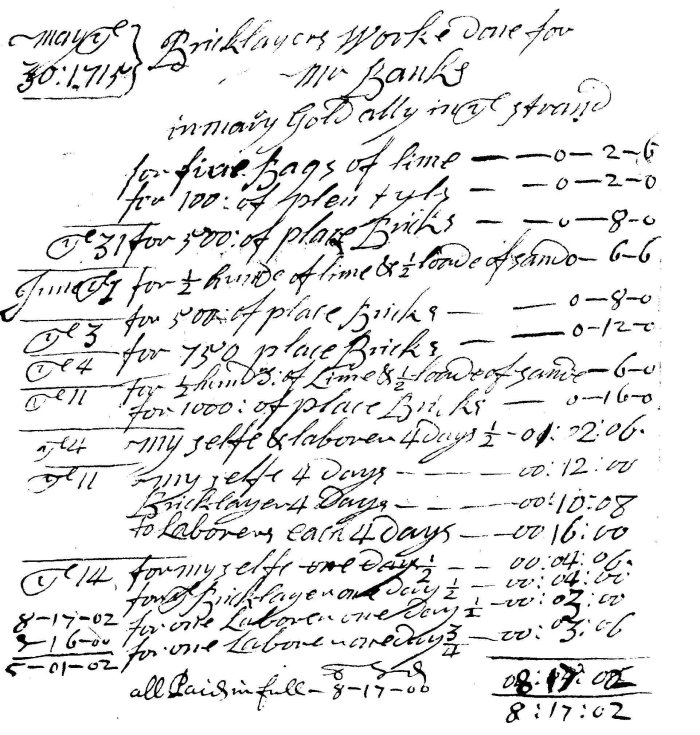 may ye } Bricklayers Worke done for
30:1715 } Mr Banks
in mary Gold ally in ye strand
for five Bags of lime — — 0-2-6
for 100: of plen tyls — — 0-2-0
ye 31 for 500: of place Bricks — — 0-8-0
June ye 1 for ½ hunde of lime & ½ loade of sand 0-6-6
for 500 of place Bricks — — 0-8-0
ye 3 for 750 place Bricks — — 0-12-0
ye 4
ye 11 for ½ hund: of Lime & ½ loade of sande — 6-0
for 1000: of place Bricks — 0-16-0
ye 4 my selfe & laborer 4 days ½ - 01:02:06
ye 11 my selfe 4 days - - - - 00:12:00
Bricklayer 4 Days - - - - 00:10:08
to Laborers each 4 days - - 00 16:00
ye 14 for my selfe one day ½ - - 00:04:06
for ye Bricklayer one day ½ - 00:04:00
8-17-02 for one Laborer one Day ½ - 00:03:00
3-16-00 for one Laborer one day ¾ - 00:03:06
5-01-02
all Paid in full - 8-17-00
8:17:02